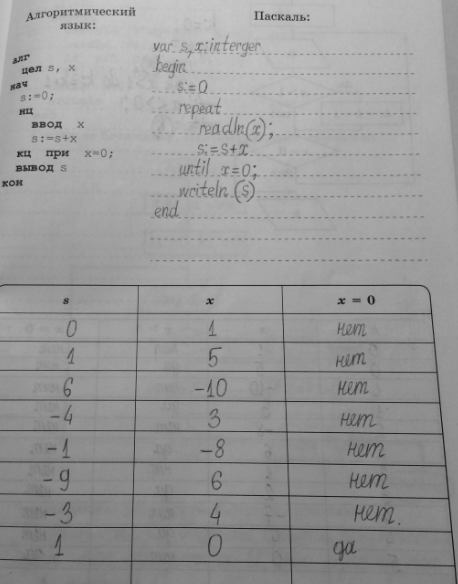 Алгоритмический
язык:
Паскаль:
алг
цел s, x
нач
s:=0;
нц
ввод x
s:=s+x
кц при x=0;
вывод s
кон
var s, x: interger
begin
s:=0
repeat
readln(x);
s:=s+x
until x=0;
writeln(s)
end
s x x = 0
0 1 нет
1 5 нет
6 -10 нет
-4 3 нет
-1 -8 нет
-9 6 нет
-3 4 нет.
1 0 да